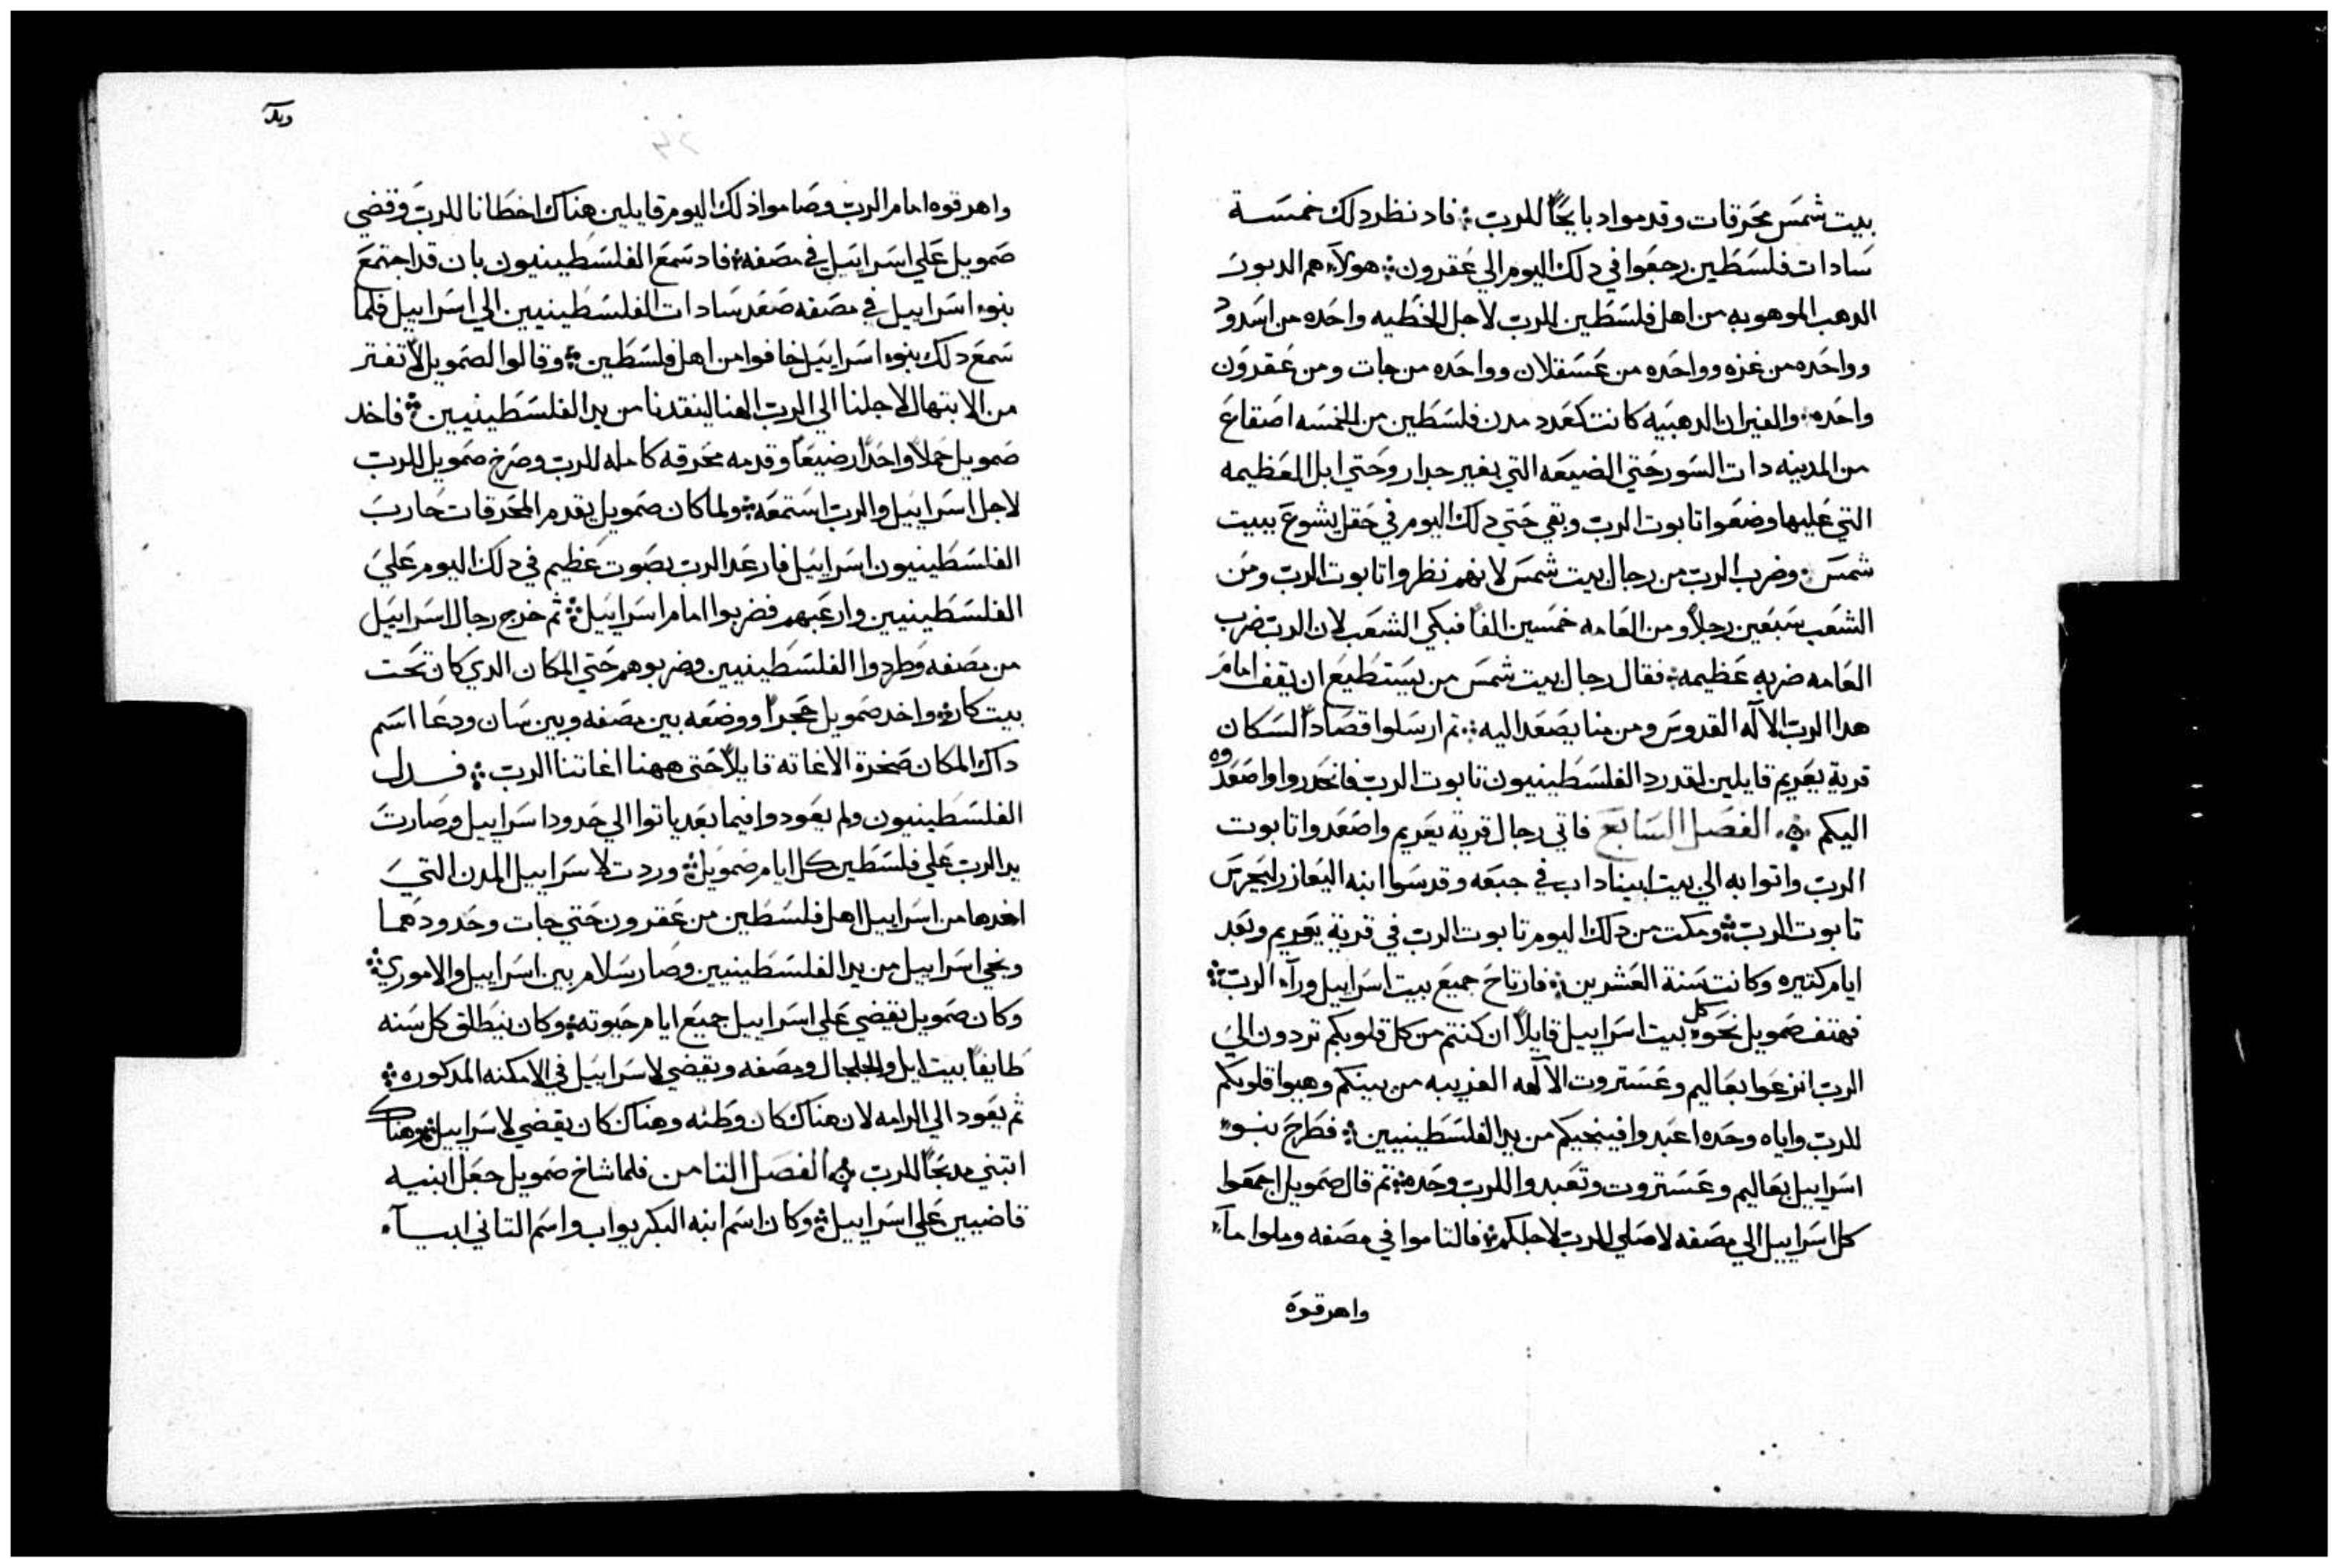 بيت شمس محرقات وقدموا دبايحًا للرب ܀ فاد نظر دلك خمسة
سادات فلسطين رجعوا في دلك اليوم الي عقرون ܀ هولآء هم الدبور
الدهب الموهوبه من اهل فلسطين للرب لاجل الخطيه واحده من اسدود
وواحده من غزه وواحده من عسقلان وواحده من جات ومن عقرون
واحده ܀ والفيران الدهبيه كانت كعدد مدن فلسطين من الخمسه اصقاع
من المدينه دات السور حتي الضيعه التي بغير جدار وحتي ابل العظيمه
التي عليها وضعوا تابوت الرب وبقي حتي دلك اليوم في حقل يشوع ببيت
شمس ܀ وضرب الرب من رجال بيت شمس لانهم نظروا تابوت الرب ومن
الشعب سبعين رجلاً ومن العامه خمسين الفًا فبكي الشعب لان الرب ضرب
العامه ضربه عظيمه ܀ فقال رجال بيت شمس من يستطيع ان يقف امام
هدا الرب الاله القدوس ومن منا يصعد اليه ܀ تم ارسلوا قصادًا لسكان
قرية يعريم قايلين لقد رد الفلسطينيون تابوت الرب فانحدروا واصعدوه
اليكم ܀ الفصل السابع فاتي رجال قرية يعريم واصعدوا تابوت
الرب واتوا به الي بيت ابيناداب في جبعه وقدسوا ابنه اليعازر ليحرس
تابوت الرب ܀ ومكت من دلك اليوم تابوت الرب في قرية يعريم وبعد
ايام كتيره وكانت سنة العشرين ܀ فارتاح جميع بيت اسراييل ورآء الرب ܀
فهتف صمويل نحو كل بيت اسراييل قايلاً ان كنتم من كل قلوبكم تردون الي
الرب انزعوا بعاليم وعستروت الالهه الغريبه من بينكم وهيوا قلوبكم
للرب واياه وحده اعبدوا فينجيكم من يد الفلسطينيين ܀ فطرح بنوء
اسراييل بعاليم وعستروت وتعبدوا للرب وحده ܀ تم قال صمويل اجمعوا
كل اسراييل الي مصفه لاصلي للرب لاجلكم ܀ فالتاموا في مصفه وملوا مآء
واهرقوه
واهرقوه امام الرب وصاموا دلك اليوم قايلين هناك اخطانا للرب وقضي
صمويل علي اسراييل في مصفه ܀ فاد سمع الفلسطينيون بان قد اجتمع
بنوء اسراييل في مصفه صعد سادات الفلسطينيين الي اسراييل فلما
سمع دلك بنوء اسراييل خافوا من اهل فلسطين ܀ وقالوا لصمويل لا تفتر
من الابتهال لاجلنا الي الرب الهنا لينقدنا من يد الفلسطينيين ܀ فاخد
صمويل حملاً واحدًا رضيعًا وقدمه محرقه كامله للرب وصرخ صمويل للرب
لاجل اسراييل والرب استمعه ܀ ولما كان صمويل يقدم المحرقات حارب
الفلسطينيون اسراييل فارعد الرب بصوت عظيم في دلك اليوم علي
الفلسطينيين وارعبهم فضربوا امام اسراييل ܀ ثم خرج رجال اسراييل
من مصفه وطردوا الفلسطينيين وضربوهم حتي المكان الدي كان تحت
بيت كار ܀ واخد صمويل حجرًا ووضعه بين مصفه وبين سان ودعا اسم
داك المكان صخرة الاغاته قايلاً حتي ههنا اغاتنا الرب ܀ فدل
الفلسطينيون ولم يعودوا فيما بعد ياتوا الي حدود اسراييل وصارت
يد الرب علي فلسطين كل ايام صمويل ܀ وردت لاسراييل المدن التي
اخدها من اسراييل اهل فلسطين من عقرون حتي جات وحدودهما
ونجي اسراييل من يد الفلسطينيين وصار سلام بين اسراييل والاموري ܀
وكان صمويل يقضي علي اسراييل جميع ايام حيوته ܀ وكان ينطلق كل سنه
طايفًا بيت ايل والجلجال ومصفه ويقضي لاسراييل في الامكنه المدكوره ܀
ثم يعود الي الرامه لان هناك كان وطنه وهناك كان يقضي لاسراييل ܀ وهناك
ابتني مدبحًا للرب ܀ الفصل التامن فلما شاخ صمويل جعل ابنيه
قاضيين علي اسراييل ܀ وكان اسم ابنه البكر يواب واسم التاني ابيآء